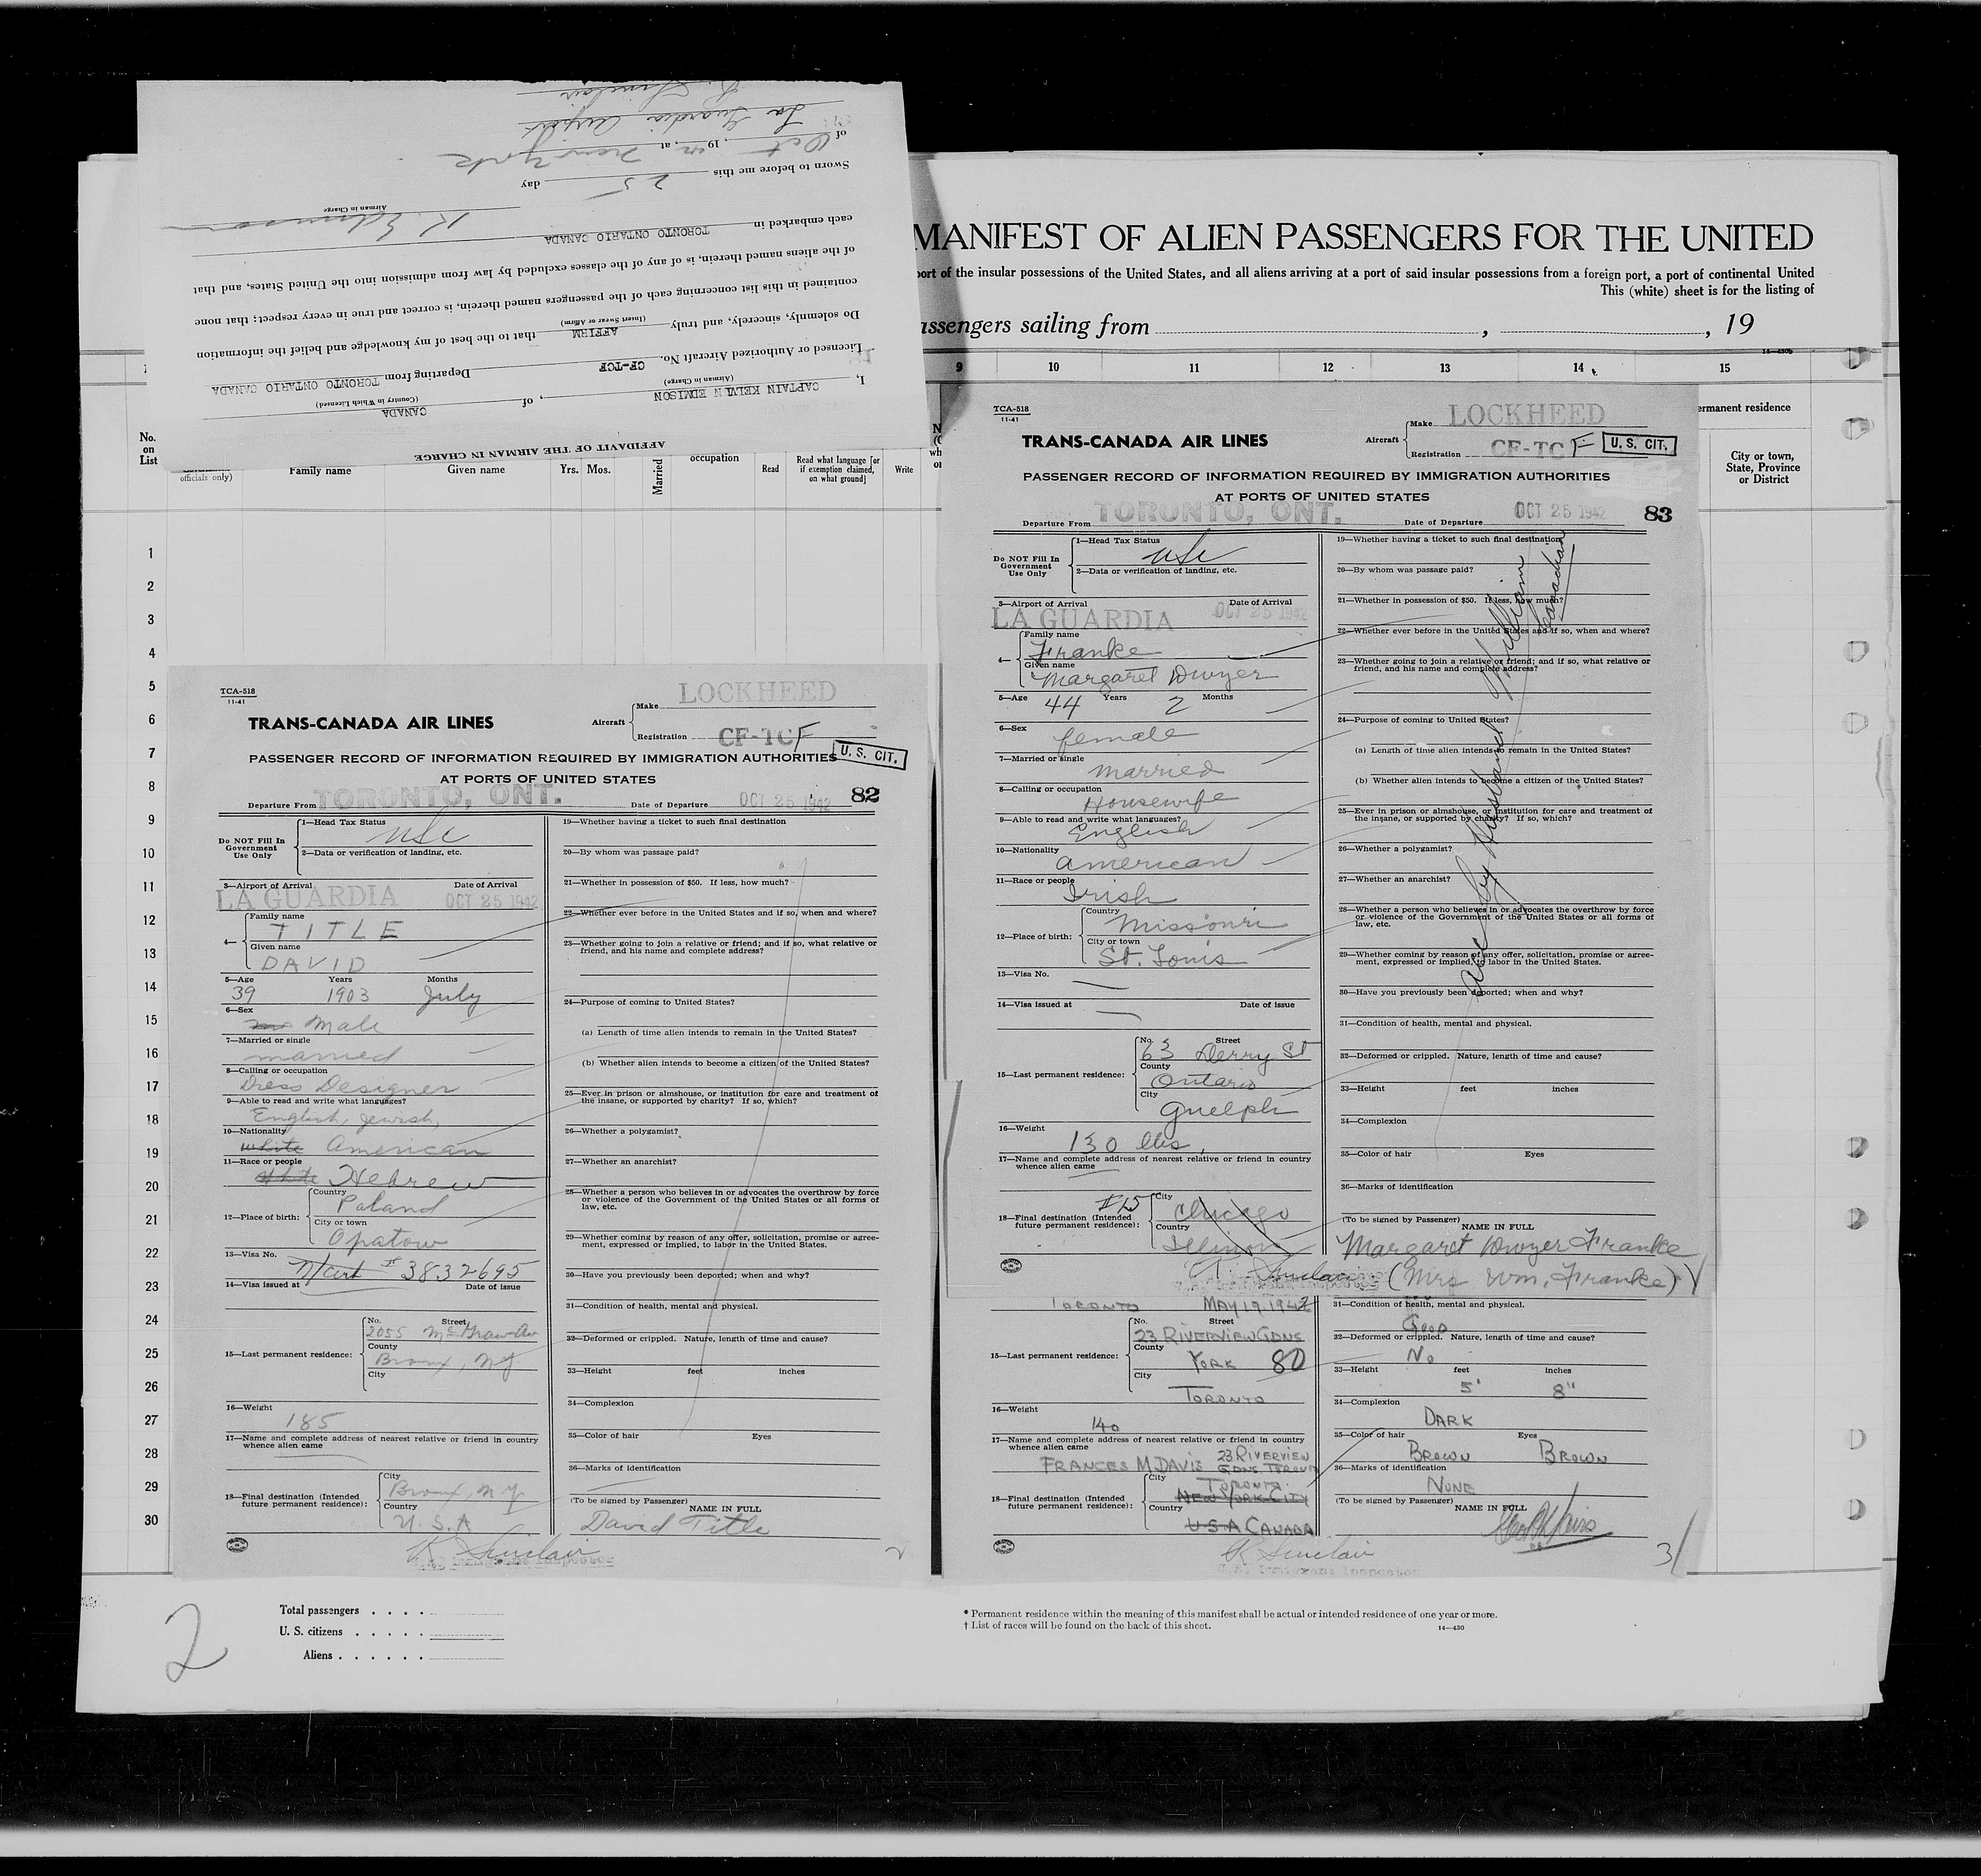 AFFIDAVIT OF THE AIRMAN IN CHARGE
I, CAPTAIN KELVIN EDMISON, of CANADA
(Airman in Charge) (Country in Which Licensed)
Licensed or Authorized Aircraft No. CF-TCF Departing from TORONTO ONTARIO CANADA
Do solemnly, sincerely, and truly AFFIRM that to the best of my knowledge and belief the information
(Insert Swear or Affirm)
contained in this list concerning each of the passengers named therein, is correct and true in every respect; that none
of the aliens named therein, is of any of the classes excluded by law from admission into the United States, and that
each embarked in TORONTO ONTARIO CANADA
K. Edmison
Airman in Charge
Sworn to before me this 25 day
of Oct, 1942, at New York
La Guardia Airport
R. Sinclair
MANIFEST OF ALIEN PASSENGERS FOR THE UNITED
port of the insular possessions of the United States, and all aliens arriving at a port of said insular possessions from a foreign port, a port of continental United
This (white) sheet is for the listing of
assengers sailing from , , 19
14—430b
9 10 11 12 13 14 15
ermanent residence
City or town, State, Province or District
No. on List
officials only)
Family name
Given name
Yrs. Mos.
Married
occupation
Read
Read what language [or if exemption claimed, on what ground]
Write
1
2
3
4
5
6
7
8
9
10
11
12
13
14
15
16
17
18
19
20
21
22
23
24
25
26
27
28
29
30
TCA-518
11-41
TRANS-CANADA AIR LINES
Aircraft
Make LOCKHEED
Registration CF-TCF
U. S. CIT.
PASSENGER RECORD OF INFORMATION REQUIRED BY IMMIGRATION AUTHORITIES
AT PORTS OF UNITED STATES
Departure From TORONTO, ONT. Date of Departure OCT 25 1942 82
Do NOT Fill In Government Use Only
1—Head Tax Status
USC
2—Data or verification of landing, etc.
3—Airport of Arrival Date of Arrival
LA GUARDIA OCT 25 1942
4—
Family name
TITLE
Given name
DAVID
5—Age Years Months
39 1903 July
6—Sex
Male
7—Married or single
married
8—Calling or occupation
Dress Designer
9—Able to read and write what languages?
English, Jewish,
10—Nationality
white American
11—Race or people
white Hebrew
12—Place of birth:
Country
Poland
City or town
Opatow
13—Visa No.
N/Cert # 3832695
14—Visa issued at Date of issue
15—Last permanent residence:
No. Street
2055 McGraw Av
County
Bronx, NY
City
16—Weight
185
17—Name and complete address of nearest relative or friend in country whence alien came
18—Final destination (Intended future permanent residence):
City
Bronx, NY
Country
U.S.A
R Sinclair
U.S. Immigrant Inspector
19—Whether having a ticket to such final destination
20—By whom was passage paid?
21—Whether in possession of $50. If less, how much?
22—Whether ever before in the United States and if so, when and where?
23—Whether going to join a relative or friend; and if so, what relative or friend, and his name and complete address?
24—Purpose of coming to United States?
(a) Length of time alien intends to remain in the United States?
(b) Whether alien intends to become a citizen of the United States?
25—Ever in prison or almshouse, or institution for care and treatment of the insane, or supported by charity? If so, which?
26—Whether a polygamist?
27—Whether an anarchist?
28—Whether a person who believes in or advocates the overthrow by force or violence of the Government of the United States or all forms of law, etc.
29—Whether coming by reason of any offer, solicitation, promise or agreement, expressed or implied, to labor in the United States.
30—Have you previously been deported; when and why?
31—Condition of health, mental and physical.
32—Deformed or crippled. Nature, length of time and cause?
33—Height feet inches
34—Complexion
35—Color of hair Eyes
36—Marks of identification
(To be signed by Passenger)
NAME IN FULL
David Title
2
TCA-518
11-41
TRANS-CANADA AIR LINES
Aircraft
Make LOCKHEED
Registration CF-TCF
U. S. CIT.
PASSENGER RECORD OF INFORMATION REQUIRED BY IMMIGRATION AUTHORITIES
AT PORTS OF UNITED STATES
Departure From TORONTO, ONT. Date of Departure OCT 25 1942 83
Do NOT Fill In Government Use Only
1—Head Tax Status
USC
2—Data or verification of landing, etc.
3—Airport of Arrival Date of Arrival
LA GUARDIA OCT 25 1942
4—
Family name
Franke
Given name
Margaret Dwyer
5—Age Years Months
44 2
6—Sex
female
7—Married or single
married
8—Calling or occupation
Housewife
9—Able to read and write what languages?
English
10—Nationality
American
11—Race or people
Irish
12—Place of birth:
Country
Missouri
City or town
St. Louis
13—Visa No.
14—Visa issued at Date of issue
15—Last permanent residence:
No. Street
63 Derry St
County
Ontario
City
Guelph
16—Weight
130 lbs.
17—Name and complete address of nearest relative or friend in country whence alien came
18—Final destination (Intended future permanent residence):
City
Chicago
Country
Illinois
R. Sinclair
19—Whether having a ticket to such final destination
20—By whom was passage paid?
21—Whether in possession of $50. If less, how much?
22—Whether ever before in the United States and if so, when and where?
23—Whether going to join a relative or friend; and if so, what relative or friend, and his name and complete address?
24—Purpose of coming to United States?
(a) Length of time alien intends to remain in the United States?
(b) Whether alien intends to become a citizen of the United States?
25—Ever in prison or almshouse, or institution for care and treatment of the insane, or supported by charity? If so, which?
26—Whether a polygamist?
27—Whether an anarchist?
28—Whether a person who believes in or advocates the overthrow by force or violence of the Government of the United States or all forms of law, etc.
29—Whether coming by reason of any offer, solicitation, promise or agreement, expressed or implied, to labor in the United States.
30—Have you previously been deported; when and why?
31—Condition of health, mental and physical.
32—Deformed or crippled. Nature, length of time and cause?
33—Height feet inches
34—Complexion
35—Color of hair Eyes
36—Marks of identification
by Husband William
Canadian
(To be signed by Passenger)
NAME IN FULL
Margaret Dwyer Franke
(Mrs Wm. Franke)
TORONTO MAY 19 1942
15—Last permanent residence:
No. Street
23 RIVERVIEW GDNS
County
YORK 80
City
TORONTO
16—Weight
140
17—Name and complete address of nearest relative or friend in country whence alien came
FRANCES M DAVIS 23 RIVERVIEW GDNS. TORONTO
18—Final destination (Intended future permanent residence):
City
TORONTO.
NEW YORK CITY
Country
USA CANADA
R Sinclair
U.S. Immigrant Inspector
31—Condition of health, mental and physical.
GOOD
32—Deformed or crippled. Nature, length of time and cause?
NO
33—Height feet inches
5' 8"
34—Complexion
DARK
35—Color of hair Eyes
BROWN BROWN
36—Marks of identification
NONE
(To be signed by Passenger)
NAME IN FULL
3
2
Total passengers . . . .
U. S. citizens . . . . .
Aliens . . . . . .
* Permanent residence within the meaning of this manifest shall be actual or intended residence of one year or more.
† List of races will be found on the back of this sheet.
14—430